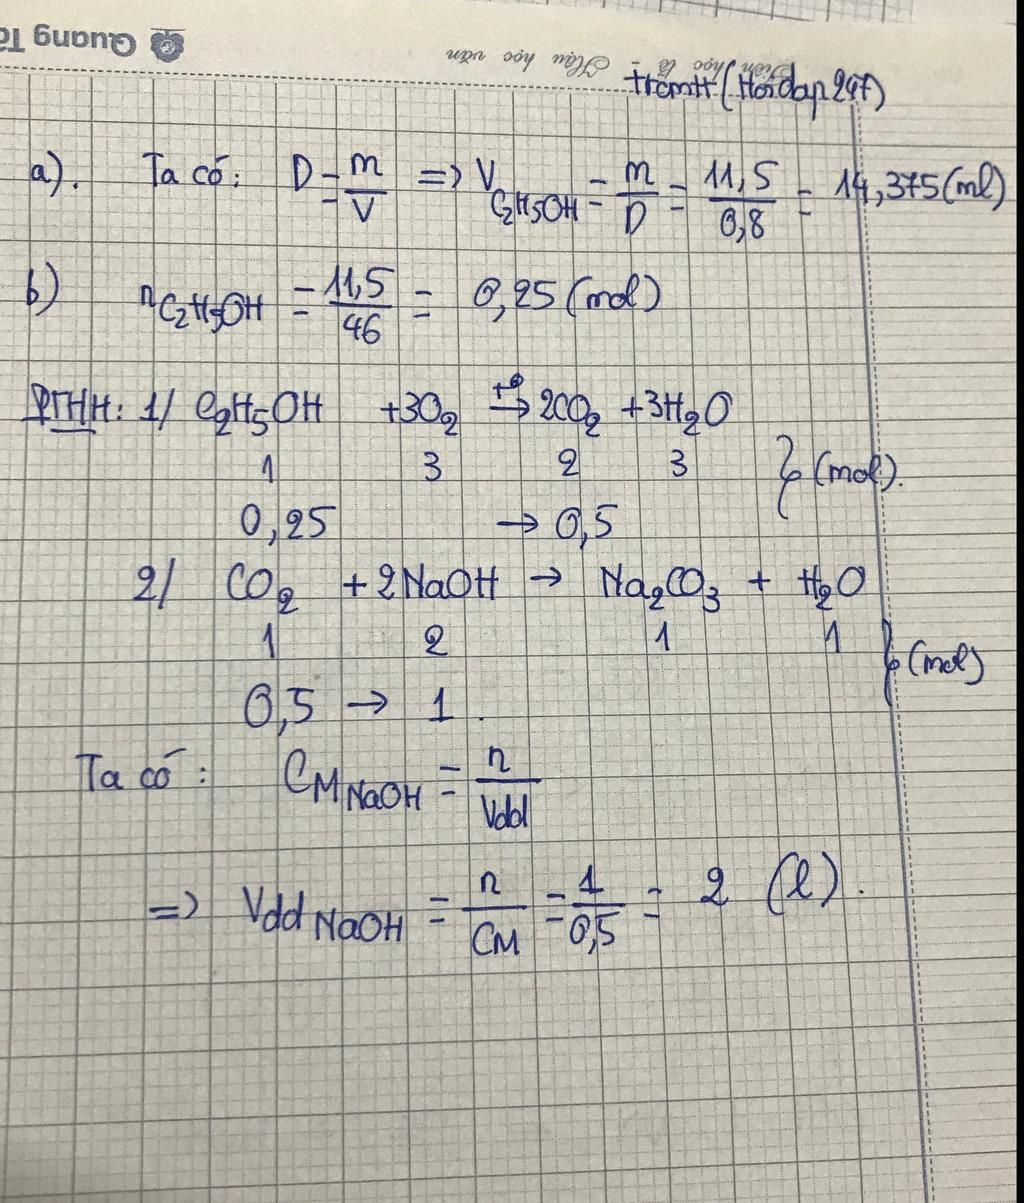 Quang Tâ
Tiên học lễ - Hậu học văn
(Hoidap247)
a). Ta có: D = m/V => V C₂H₅OH = m/D = 11,5/0,8 = 14,375 (ml)
b) nC₂H₅OH = 11,5/46 = 0,25 (mol)
PTHH: 1/ C₂H₅OH +3O₂ →(t°) 2CO₂ +3H₂O
1 3 2 3 } (mol).
0,25 → 0,5
2/ CO₂ + 2NaOH → Na₂CO₃ + H₂O
1 2 1 1 } (mol)
0,5 → 1.
Ta có: CM NaOH = n/Vdd
=> Vdd NaOH = n/CM = 1/0,5 = 2 (l).